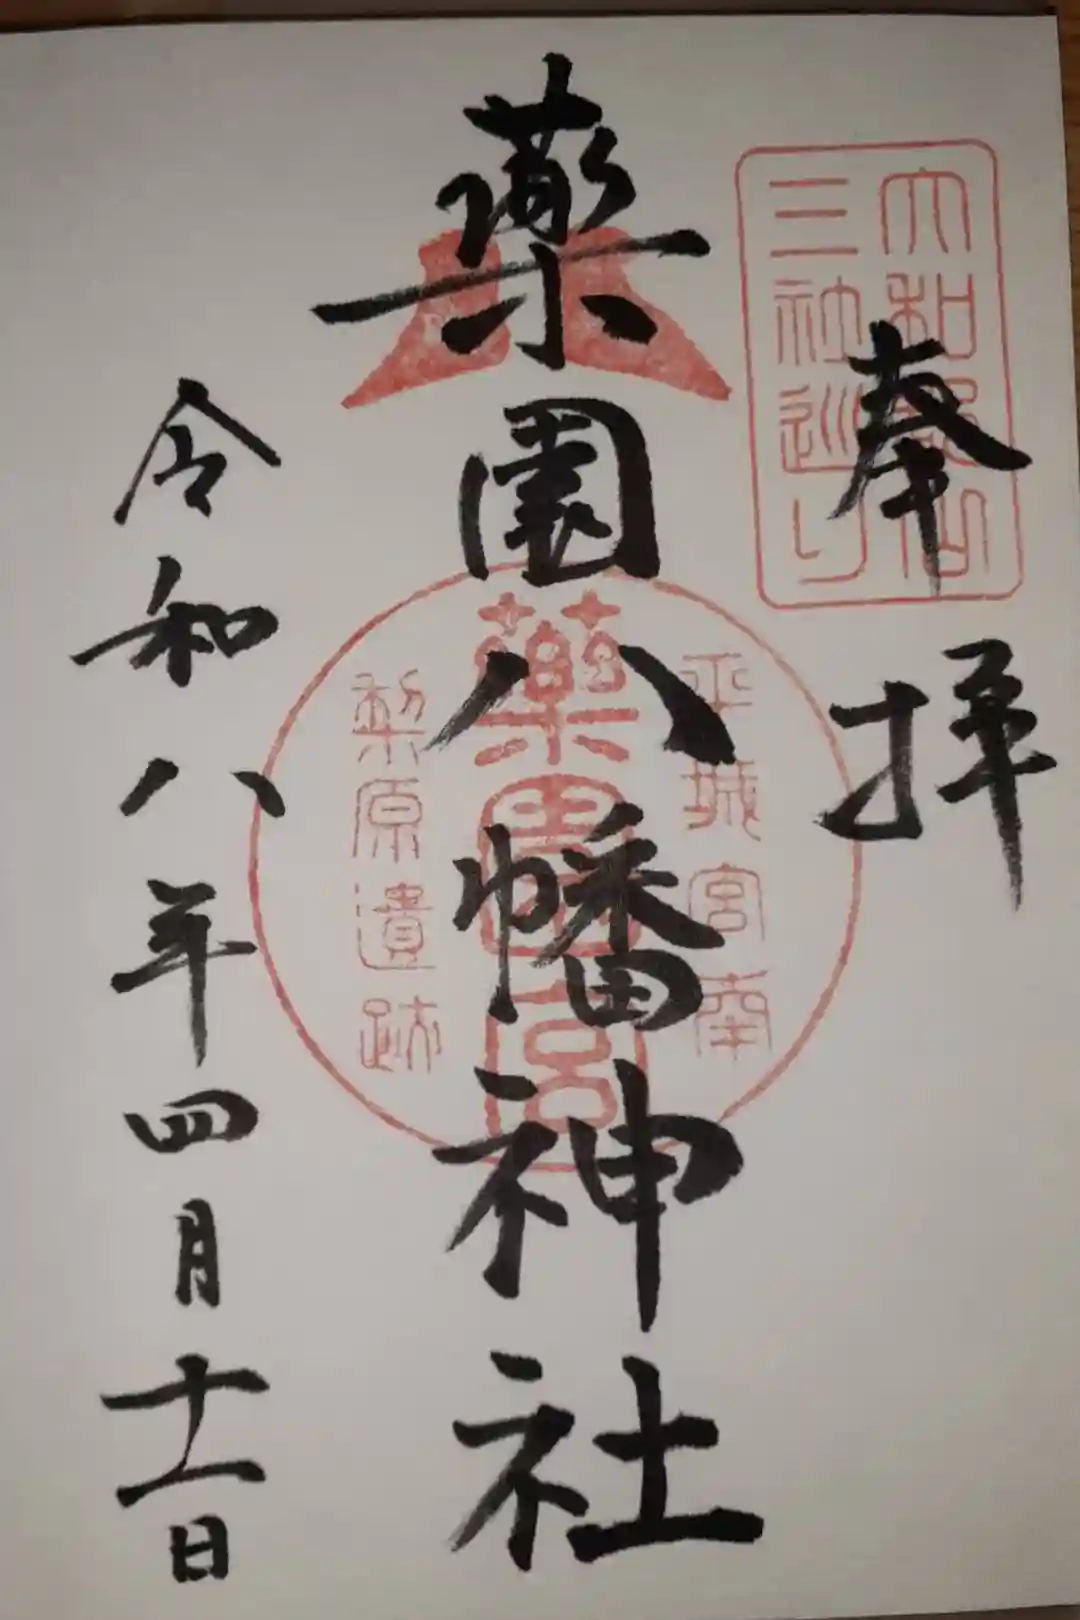 奉拝
大和郡山
三社巡り
薬園八幡神社
平城宮南
薬園宮
梨原遺跡
令和八年四月十一日